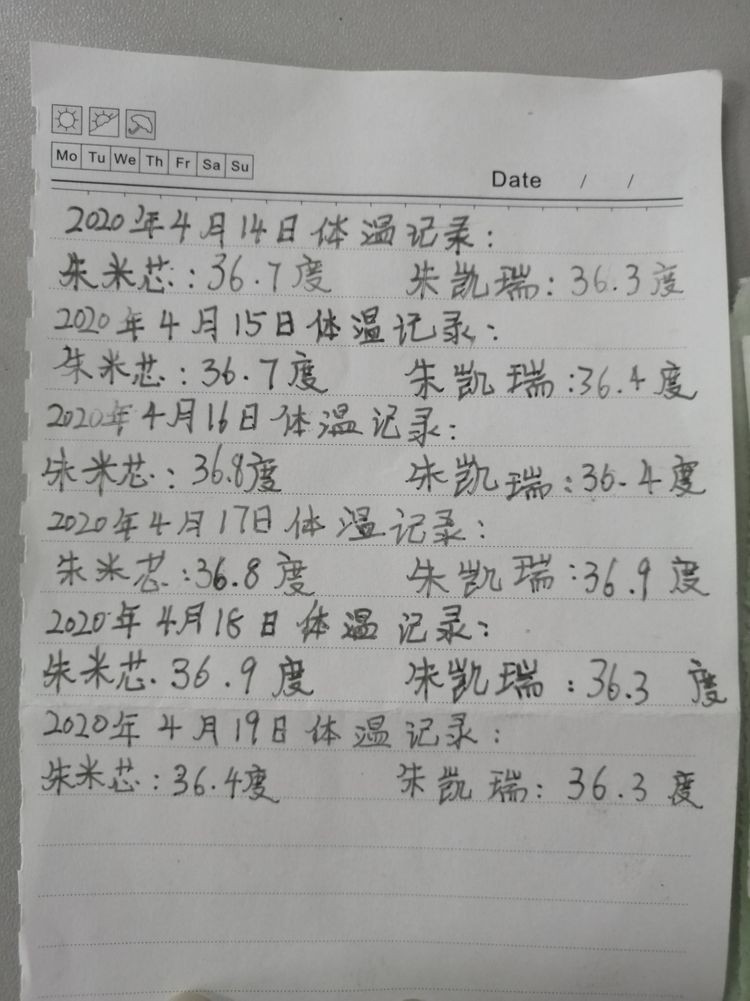 Mo Tu We Th Fr Sa Su
Date / /
2020年4月14日体温记录:
朱米芯:36.7度 朱凯瑞:36.3度
2020年4月15日体温记录:
朱米芯:36.7度 朱凯瑞:36.4度
2020年4月16日体温记录:
朱米芯:36.8度 朱凯瑞:36.4度
2020年4月17日体温记录:
朱米芯:36.8度 朱凯瑞:36.9度
2020年4月18日体温记录:
朱米芯.36.9度 朱凯瑞:36.3度
2020年4月19日体温记录:
朱米芯:36.4度 朱凯瑞:36.3度